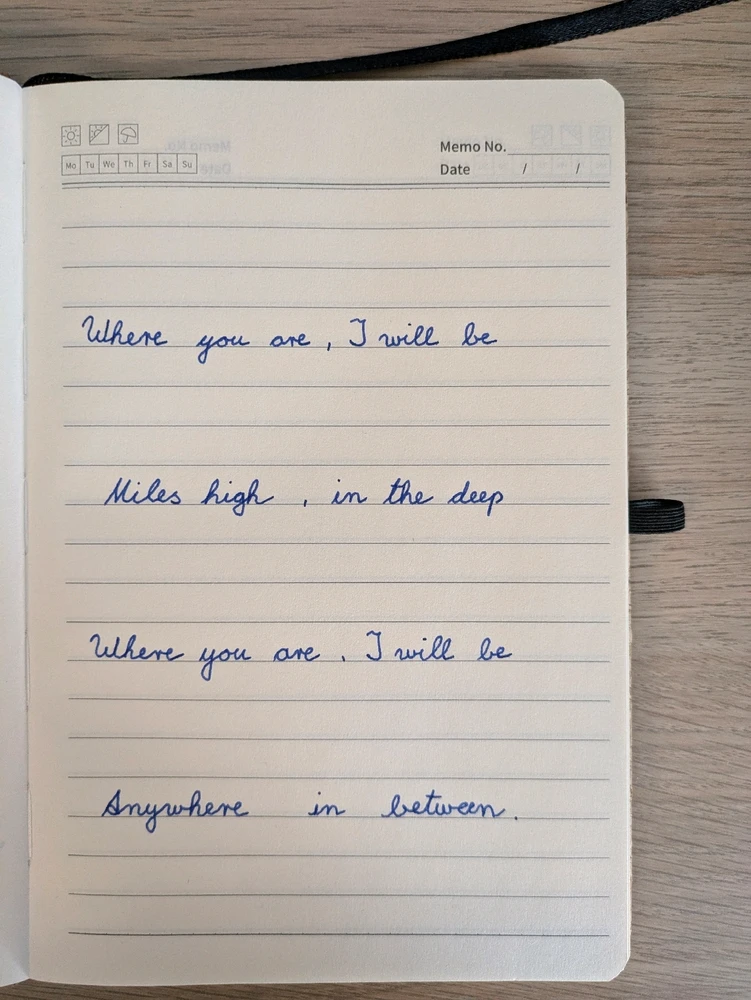 Memo No.
Mo Tu We Th Fr Sa Su
Date / /
Where you are, I will be
Miles high, in the deep
Where you are. I will be
Anywhere in between.